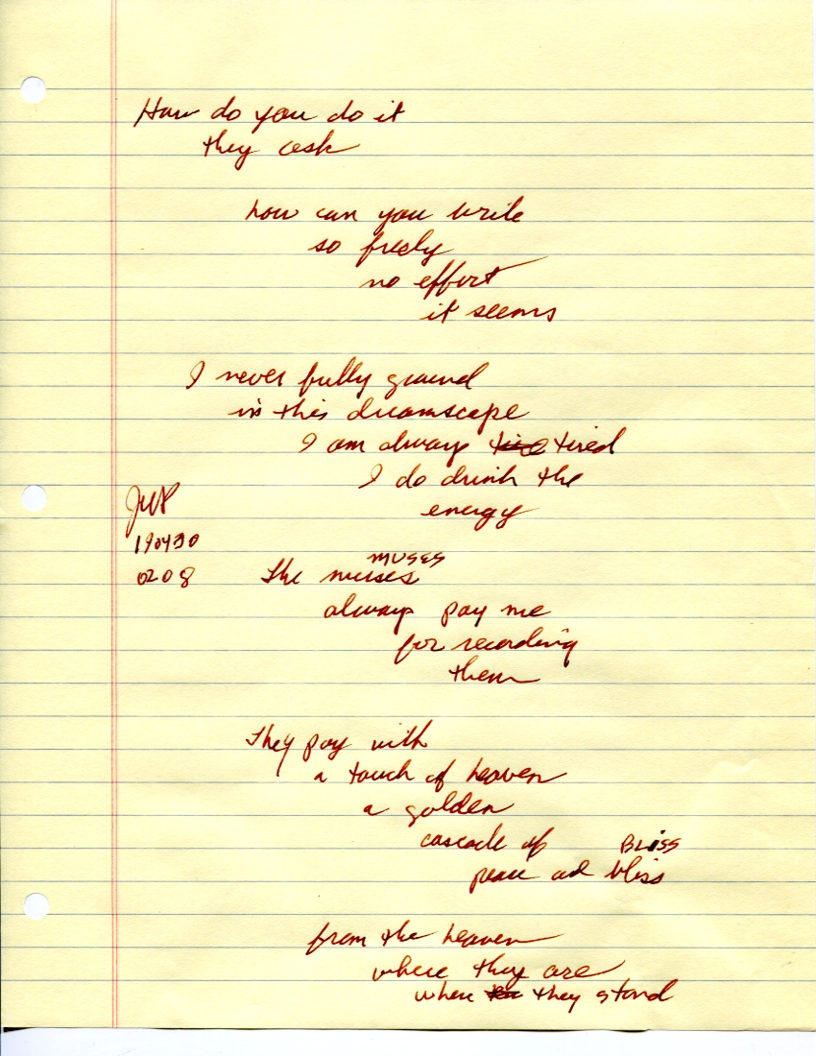 How do you do it
they ask
how can you write
so freely
no effort
it seems
I never fully ground
in this dreamscape
I am always tired
I do drink the
energy
JWP
190430
0208
MUSES
The muses
always pay me
for recording
them
They pay with
a touch of heaven
a golden
cascade of
BLISS
peace and bliss
from the heaven
where they are
where they stand